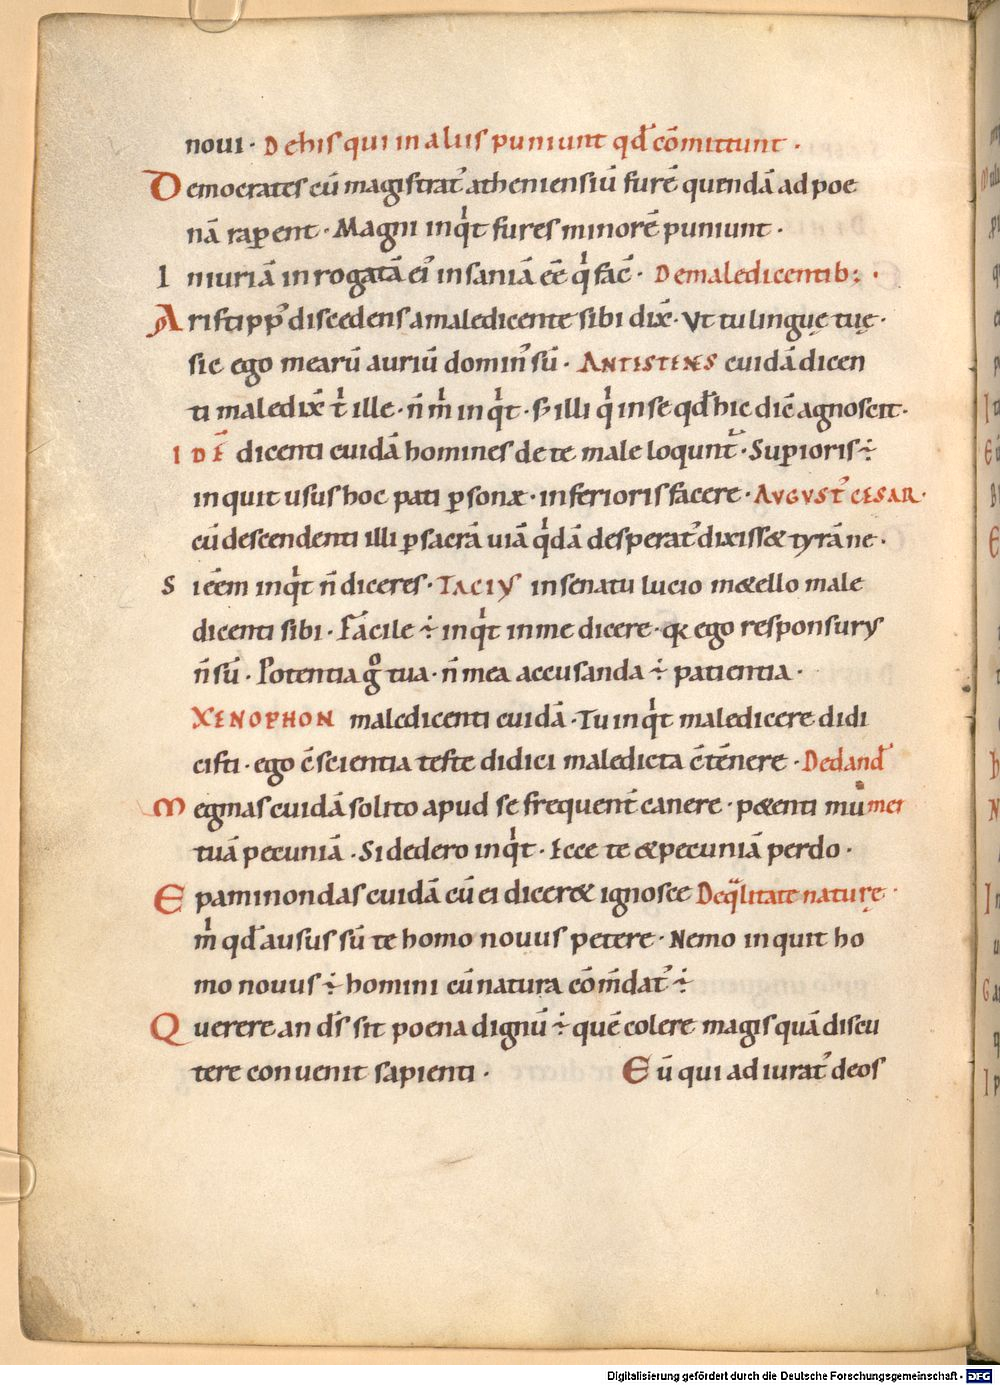 noui · De his qui in aliis puniunt qđ cōmittunt ·
Democrates cū magistrat᾽ atheniensiū furē quendā ad poe
nā rap̄ent · Magni inqͥt fures minorē puniunt ·
Iniuriā inrogatā ei᾽ insaniā eē qͥ fac̄ · De maledicentib; ·
Aristipp᾽ discedens a maledicente sibi dix̄ · Vt tu linguę tuę ·
sic ego mearū auriū domin᾽ sū · ANTISTENS cuidā dicen
ti maledix̄ tͥ ille · n̄ mͥ inqͥt · s; illi qͥ in se qđ hic dic̄ agnoscit ·
IDĒ dicenti cuidā homines de te male loqunt᾽ · Superioris ÷
inquit usus hoc pati p̱sonæ · inferioris facere · AVGVST᾽ CESAR ·
cū descendenti illi p̱ sacrā uiā qͥdā desperat᾽ dixiss& tyrānne ·
Si eēm inqͥt n̄ diceres · TACIVS in senatu lucio m&ello male
dicenti sibi · Facile ÷ inqͥt in me dicere · qꝛ ego responsurus
n̄ sū · Potentia gͦ tua · n̄ mea accusanda ÷ patientia ·
XENOPHON maledicenti cuidā · Tu inqͥt maledicere didi
cisti · ego c̄scientia teste didici maledicta c̄tēnere · De dand̄
Megmas cuidā solito apud se frequent̄ canere · p&enti mu mer
tuā pecuniā · Si dedero inqͥt · Ecce te & pecuniā perdo ·
Epaminondas cuidā cū ei dicer& ignosce De qͣlitate naturę ·
mͥ qđ ausus sū te homo nouus petere · Nemo inquit ho
mo nouus ÷ homini cū natura cōm̄dat᾽ ÷
Querere an dſ̄ sit poena dignū ÷ quē colere magis quā discu
tere conuenit sapienti · Eū qui adiurat᾽ deos
Digitalisierung gefördert durch die Deutsche Forschungsgemeinschaft - DFG